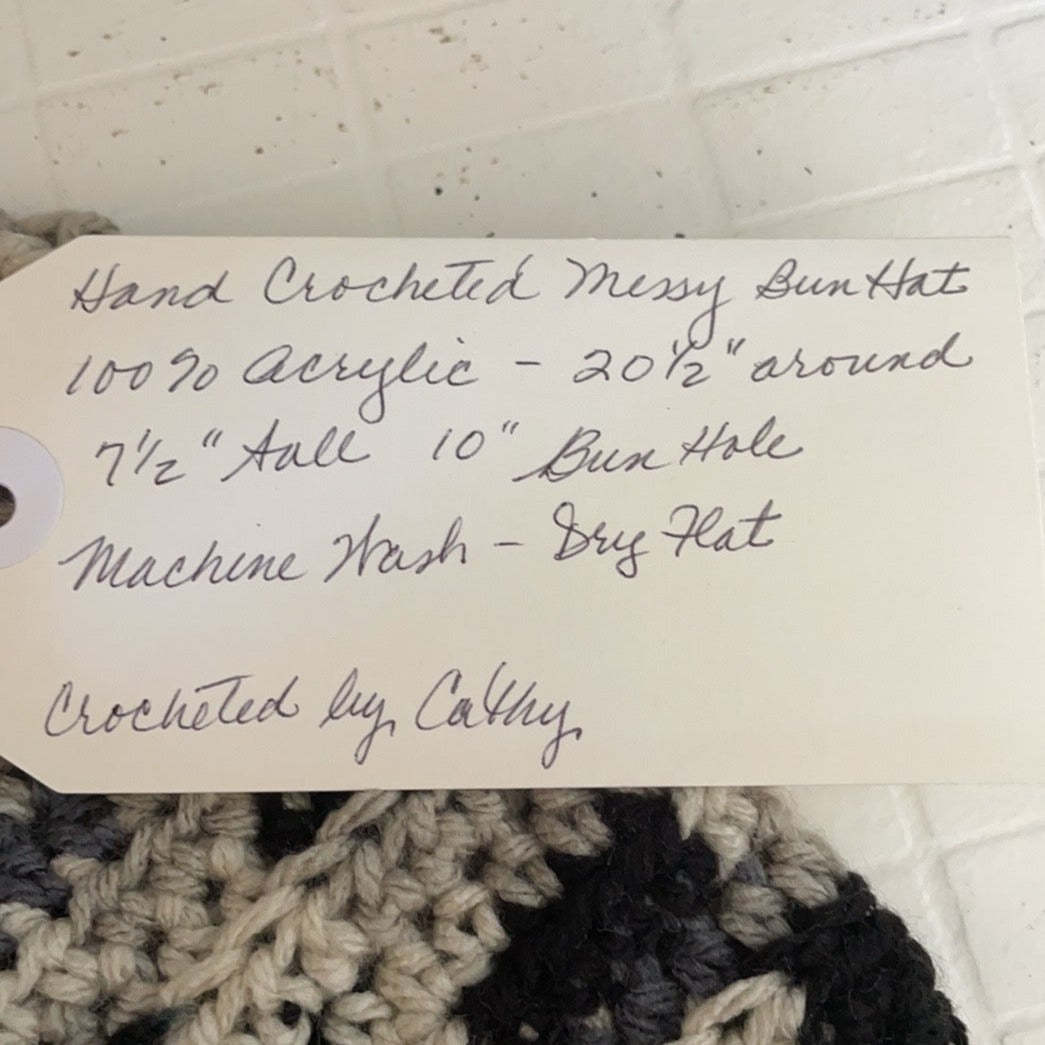 Hand Crocheted Messy Bun Hat
100% Acrylic - 20 1/2" around
7 1/2" tall 10" Bun Hole
Machine Wash - Dry Flat
Crocheted by Cathy